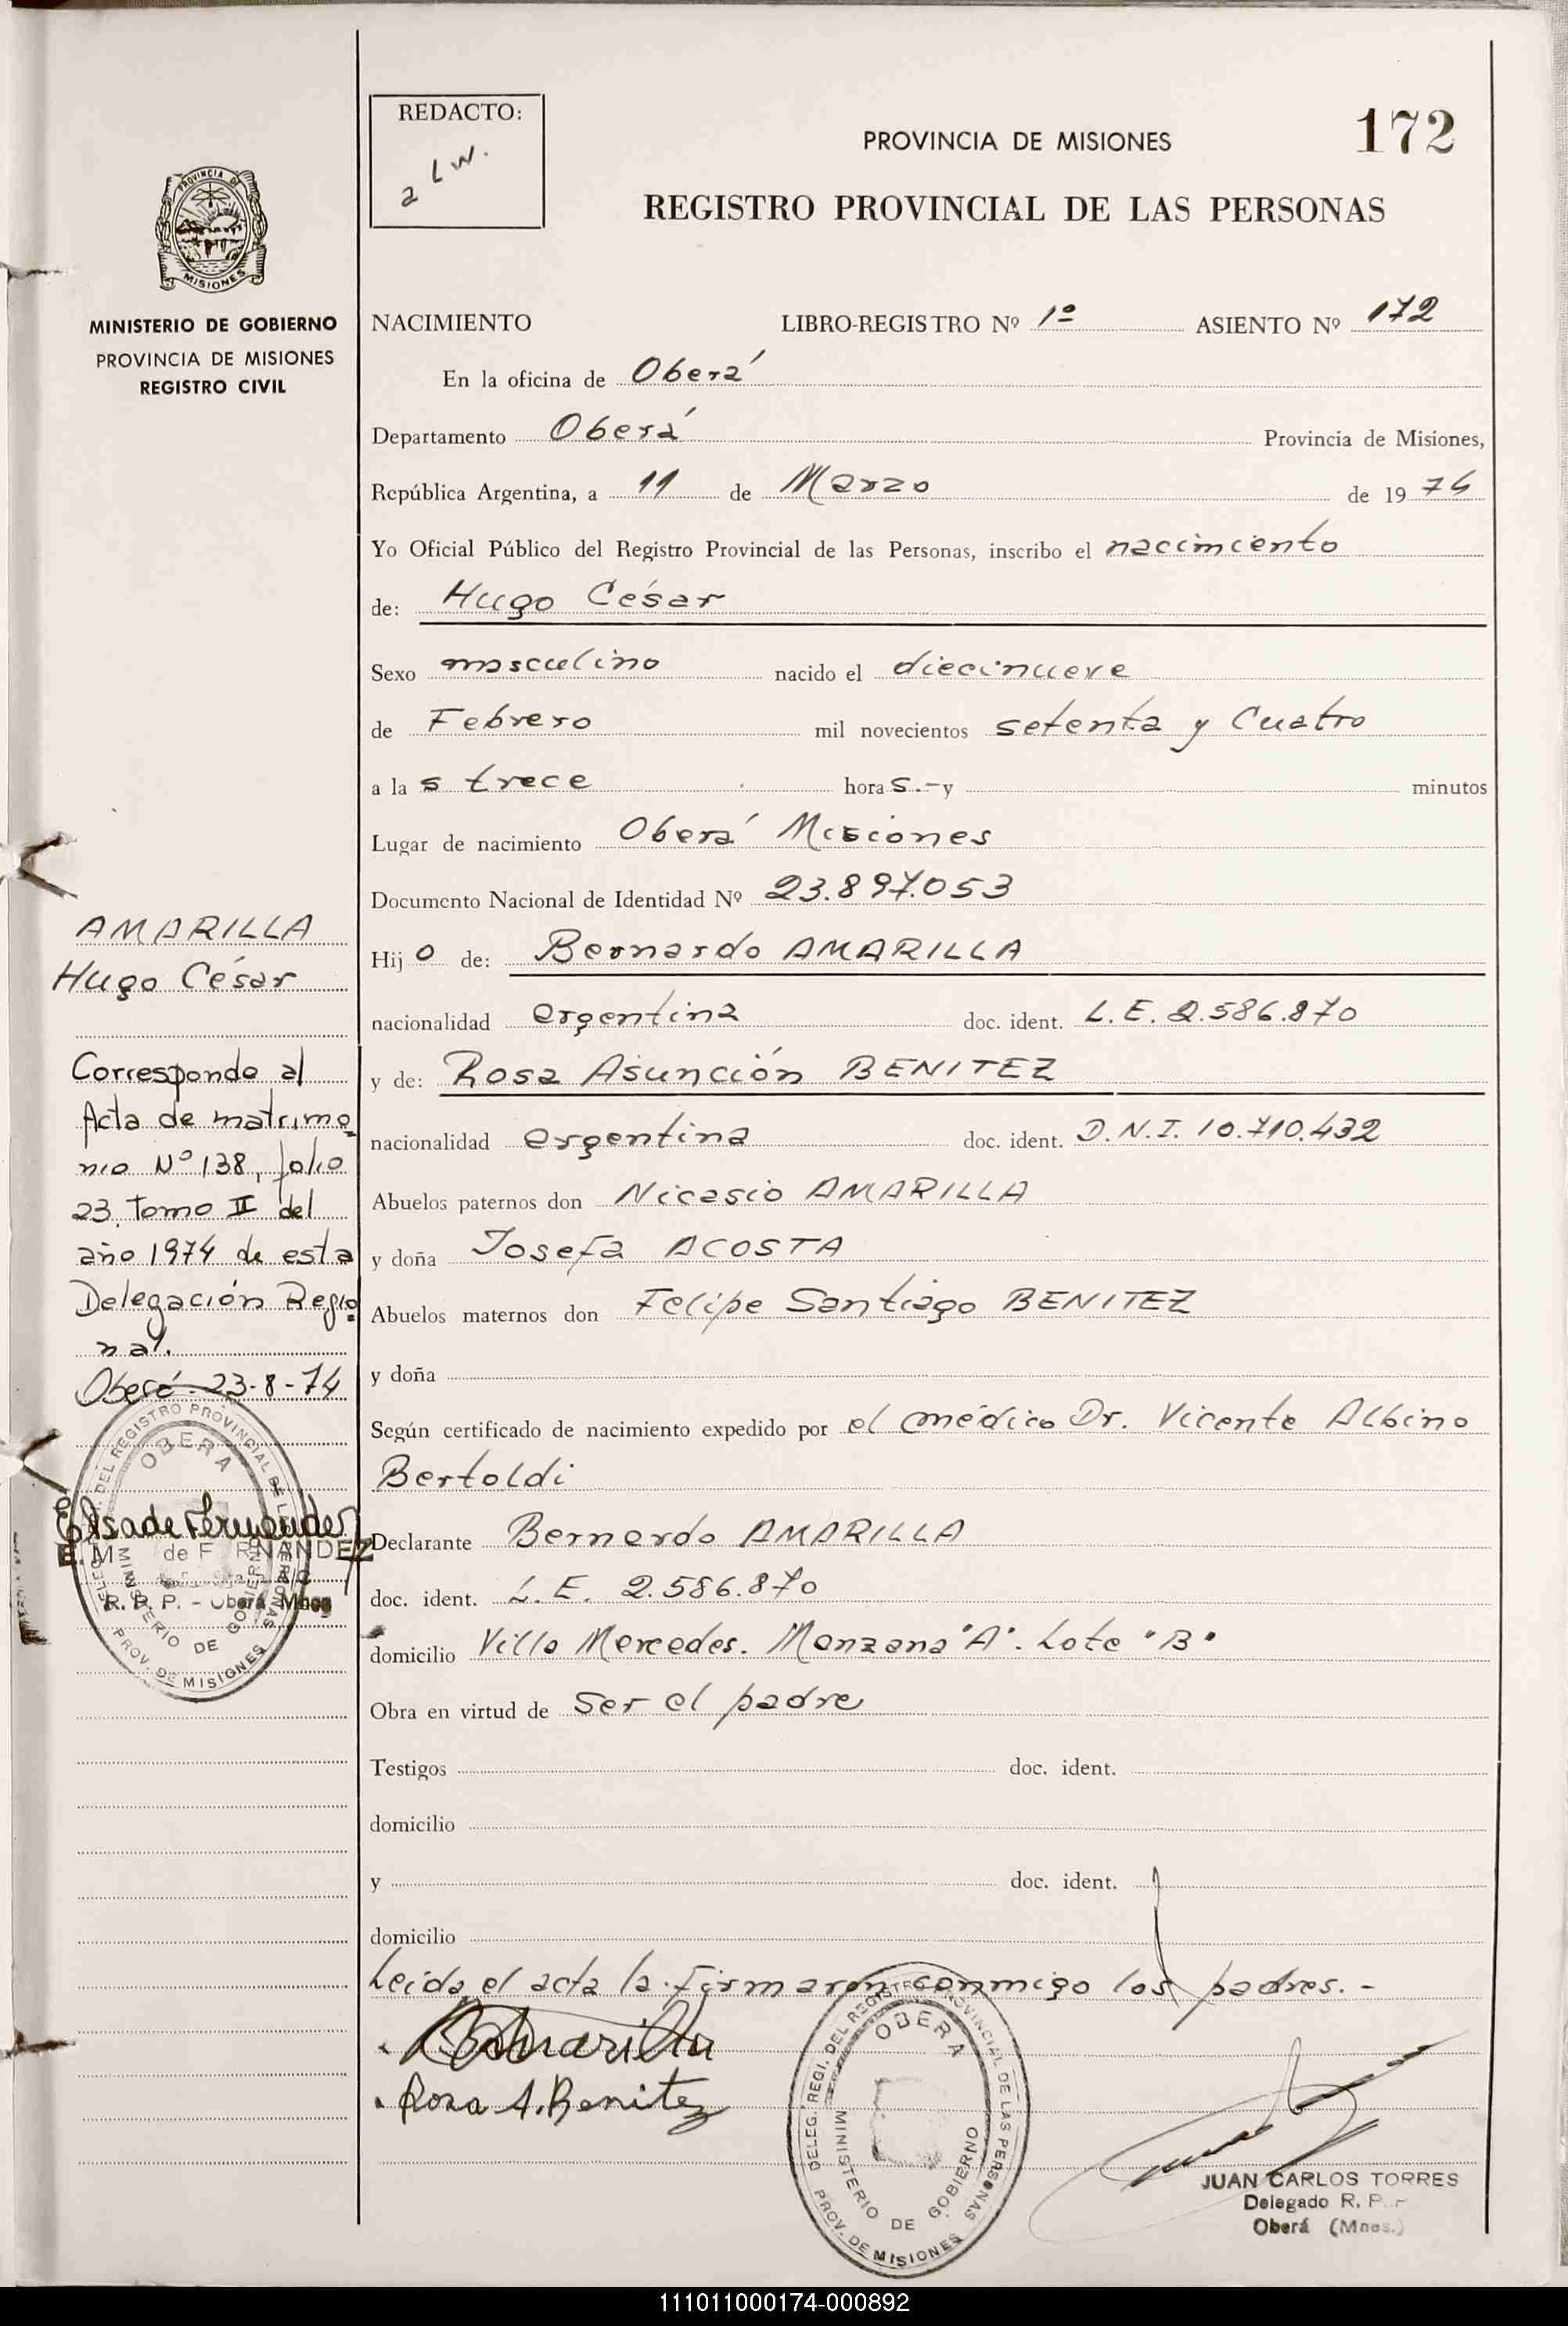 REDACTO:
2 LW.
PROVINCIA DE MISIONES
172
REGISTRO PROVINCIAL DE LAS PERSONAS
PROVINCIA DE
MISIONES
MINISTERIO DE GOBIERNO
PROVINCIA DE MISIONES
REGISTRO CIVIL
NACIMIENTO LIBRO-REGISTRO Nº 1º ASIENTO Nº 172
En la oficina de Oberá
Departamento Oberá Provincia de Misiones,
República Argentina, a 11 de Marzo de 1974
Yo Oficial Público del Registro Provincial de las Personas, inscribo el nacimiento
de: Hugo César
Sexo masculino nacido el diecinueve
de Febrero mil novecientos setenta y Cuatro
a las trece horas.- y minutos
Lugar de nacimiento Oberá Misiones
Documento Nacional de Identidad Nº 23.897.053
Hijo de: Bernardo AMARILLA
nacionalidad argentina doc. ident. L.E. 2.586.870
y de: Rosa Asunción BENITEZ
nacionalidad argentina doc. ident. D.N.I. 10.710.432
Abuelos paternos don Nicasio AMARILLA
y doña Josefa ACOSTA
Abuelos maternos don Felipe Santiago BENITEZ
y doña
Según certificado de nacimiento expedido por el médico Dr. Vicente Albino
Bertoldi
Declarante Bernardo AMARILLA
doc. ident. L.E. 2.586.870
domicilio Villa Mercedes. Manzana "A". Lote "B"
Obra en virtud de Ser el padre
Testigos doc. ident.
domicilio
y doc. ident.
domicilio
Leida el acta la firmaron conmigo los padres.-
BAmarilla
Rosa A. Benitez
DELEG. REGI. DEL REGISTRO PROVINCIAL DE LAS PERSONAS
OBERA
MINISTERIO DE GOBIERNO
PROV. DE MISIONES
JUAN CARLOS TORRES
Delegado R. P.
Oberá (Mnes.)
AMARILLA
Hugo César
Corresponde al
Acta de matrimo
nio Nº 138, folio
23 Tomo II del
año 1974 de esta
Delegación Regio
nal.
Oberá 23-8-74
DEL REGISTRO PROVINCIAL DE LAS PERSONAS
OBERA
Elsa de Fernandez
E. M de FERNANDEZ
R. P. P. - Oberá Mnes
MINISTERIO DE GOBIERNO
PROV. DE MISIONES
111011000174-000892